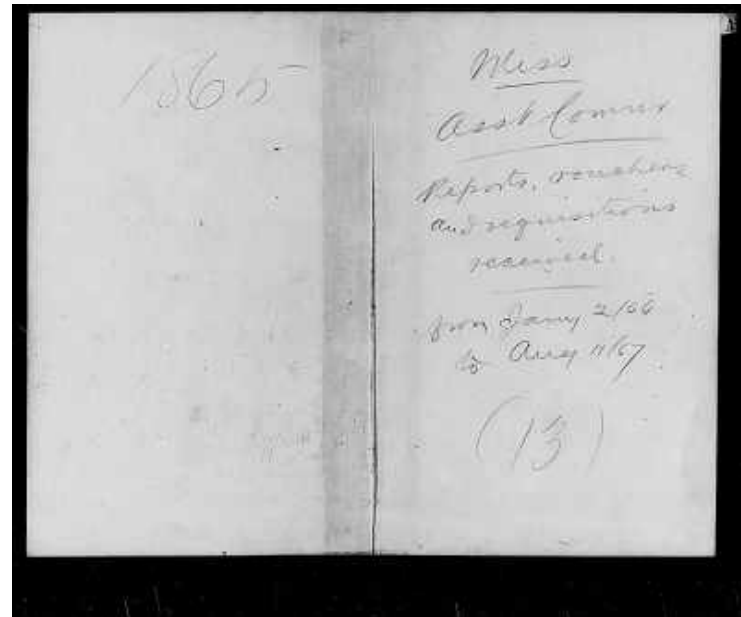 1865
Miss
Asst Comr
Reports, vouchers
and requisitions
received.
from Jany 2/66
to Aug 11/67
(13)